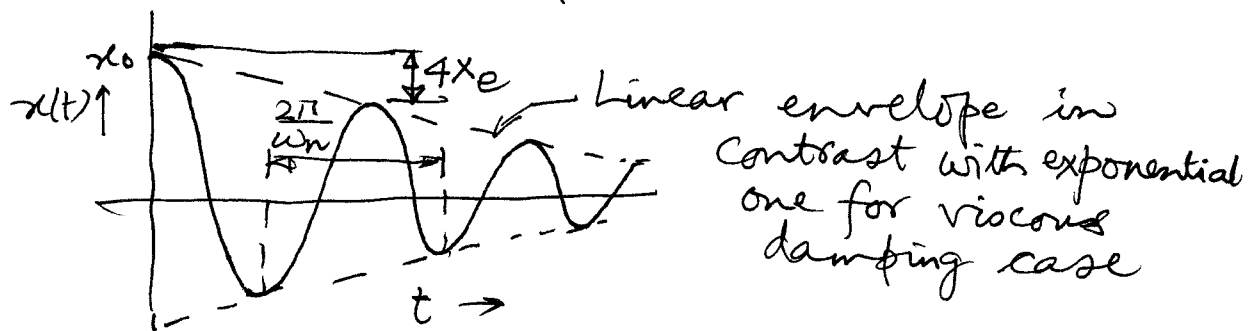 x₀
4xₑ
x(t) ↑
2π/ωₙ
Linear envelope in
contrast with exponential
one for viscous
damping case
t →